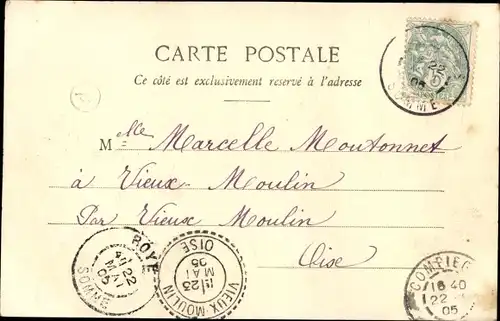 CARTE POSTALE
Ce côté est exclusivement reservé à l'adresse
Mlle Marcelle Moutonnet
à Vieux-Moulin
Par Vieux Moulin
Oise
22
05
SOMME
ROYE
22
MAI
05
SOMME
VIEUX-MOULIN
23
MAI
05
OISE
COMPIEG
16 40
22
05